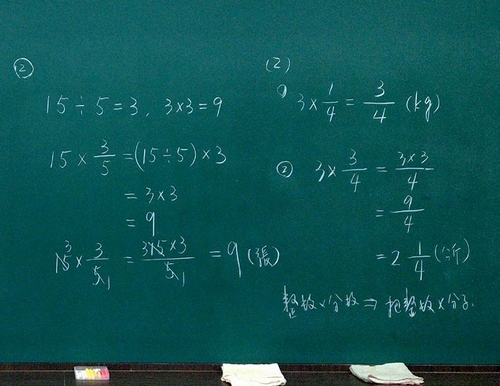 ②
15÷5=3, 3×3=9
15×3/5=(15÷5)×3
=3×3
=9
3 15×3/5 1=3 15×3/5 1=9(張)
(2)
① 3×1/4=3/4(kg)
② 3×3/4=3×3/4
=9/4
=2 1/4(公斤)
整數×分數⇒把整數×分子.